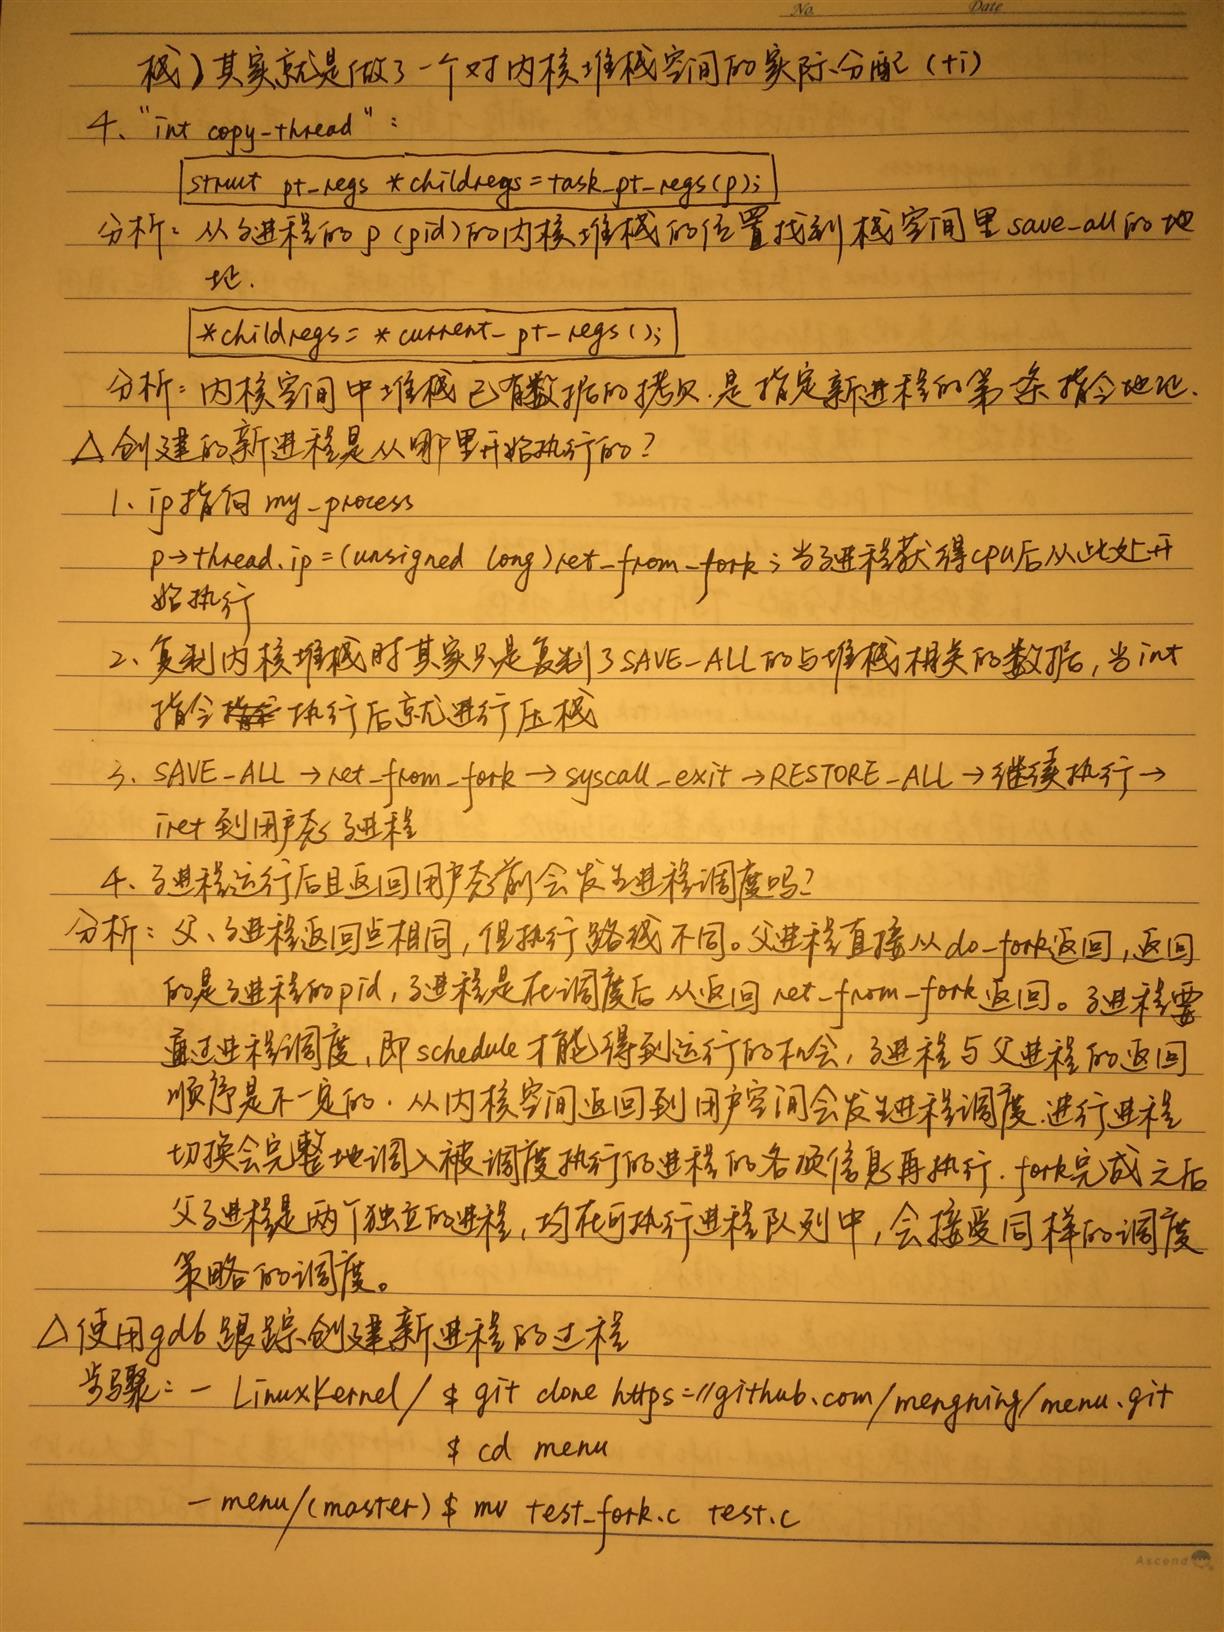 No.    Date
栈)其实就是做了一个对内核堆栈空间的实际分配(ti)
4、"int copy-thread":
struct pt_regs *childregs=task_pt_regs(p);
分析:从子进程的p(pid)的内核堆栈的位置找到栈空间里save_all的地
址.
*childregs= *current_pt_regs();
分析:内核空间中堆栈已有数据的拷贝.是指定新进程的第一条指令地址.
△创建的新进程是从哪里开始执行的?
1、ip指向my_process
p→thread.ip=(unsigned long)ret_from_fork;当子进程获得cpu后从此处开
始执行
2、复制内核堆栈时其实只是复制了SAVE_ALL的与堆栈相关的数据,当int
指令执行后就进行压栈
3、SAVE_ALL→ret_from_fork→syscall_exit→RESTORE_ALL→继续执行→
iret到用户态子进程
4、子进程运行后且返回用户态前会发生进程调度吗?
分析:父、子进程返回点相同,但执行路线不同。父进程直接从do_fork返回,返回
的是子进程的pid,子进程是在调度后从返回ret_from_fork返回。子进程要
通过进程调度,即schedule才能得到运行的机会,子进程与父进程的返回
顺序是不一定的.从内核空间返回到用户空间会发生进程调度.进行进程
切换会完整地调入被调度执行的进程的各项信息再执行.fork完成之后
父子进程是两个独立的进程,均在可执行进程队列中,会接受同样的调度
策略的调度。
△使用gdb跟踪创建新进程的过程
步骤:— LinuxKernel/ $ git clone https://github.com/mengning/menu.git
$ cd menu
— menu/(master) $ mv test_fork.c test.c
Ascend